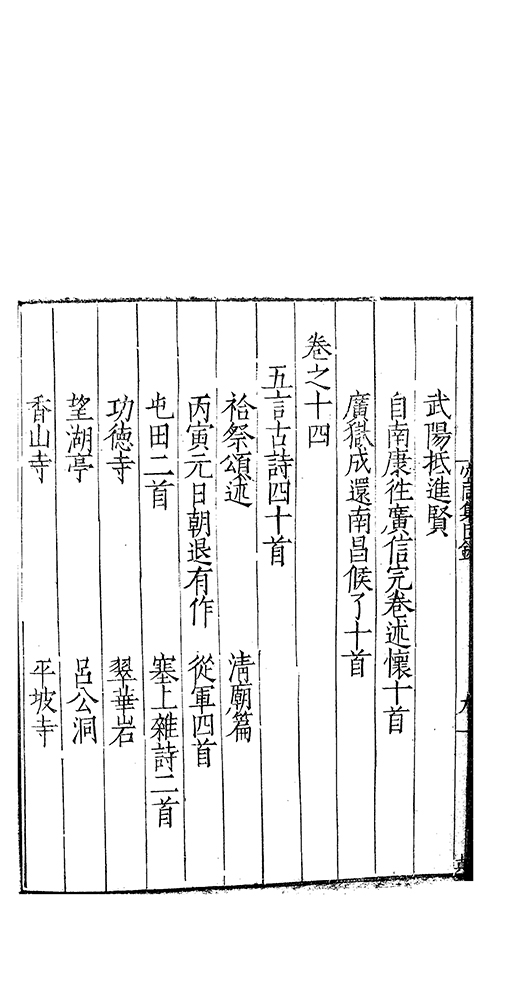 武陽抵進賢
自南康徃廣信完卷述懷十首
廣獄成還南昌候了十首
卷之十四
五言古詩四十首
祫祭頌述　清廟篇
丙寅元日朝退有作　從軍四首
屯田二首　塞上雜詩二首
功德寺　翠華岩
望湖亭　呂公洞
香山寺　平坡寺